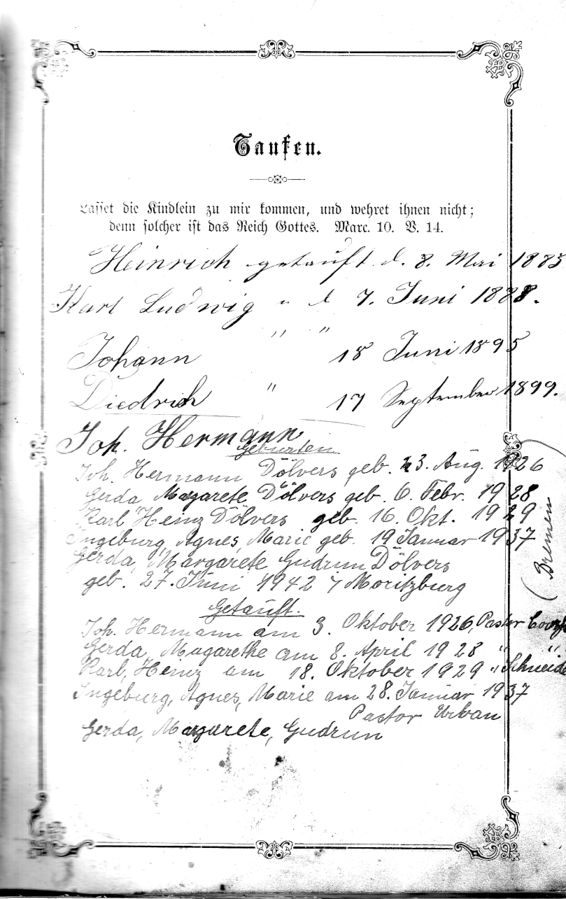 Taufen.
Lasset die Kindlein zu mir kommen, und wehret ihnen nicht;
denn solcher ist das Reich Gottes. Marc. 10. V. 14.
Heinrich getauft d. 8. Mai 1885
Karl Ludwig " d 7. Juni 1888.
" "
Johann 18 Juni 1895
Diedrich " 17 September 1899.
Joh. Hermann
Geburten
Joh. Hermann Dölvers geb. 23. Aug. 1926
Gerda Magarete Dölvers geb. 6. Febr. 1928
Karl Heinz Dölvers geb. 16. Okt. 1929
Ingeburg Agnes Marie geb. 19 Januar 1937
Gerda, Margarete Gudrun Dölvers
geb. 27. Juni 1942 Moritzburg
(Bremen)
Getauft.
Joh. Hermann am 3. Oktober 1926, Pastor
Gerda, Magarethe am 8. April 1928 " "
Karl, Heinz am 18. Oktober 1929 " Schneide
Ingeburg, Agnes, Marie am 28. Januar 1937
Pastor Urban
Gerda, Margarete, Gudrun